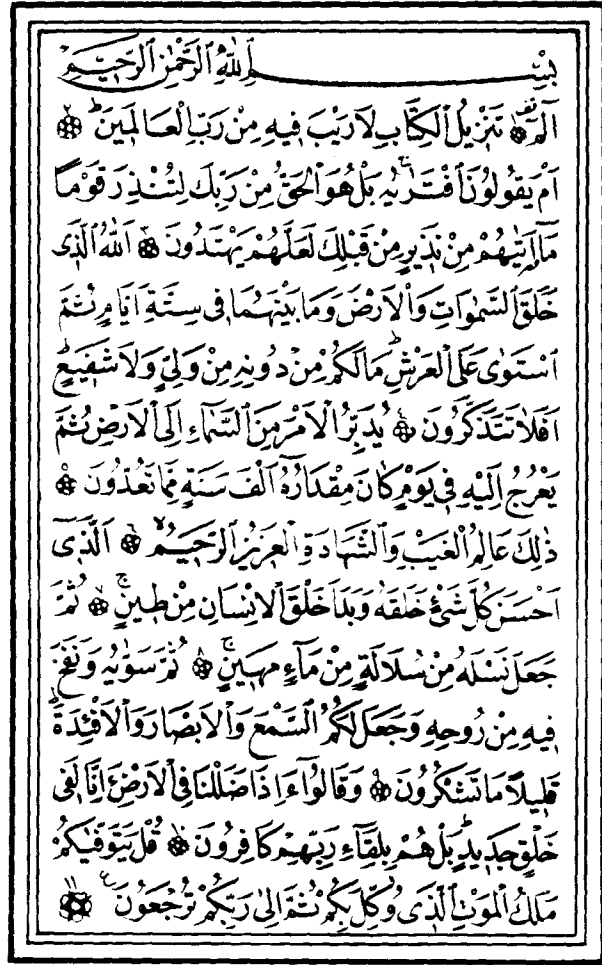 بِسْمِ اللّٰهِ الرَّحْمٰنِ الرَّحٖيمِ
الٓمٓ ۞ تَنْزٖيلُ الْكِتَابِ لَا رَيْبَ فٖيهِ مِنْ رَبِّ الْعَالَمٖينَ ۞
اَمْ يَقُولُونَ افْتَرٰيهُ بَلْ هُوَ الْحَقُّ مِنْ رَبِّكَ لِتُنْذِرَ قَوْمًا
مَٓا اَتٰيهُمْ مِنْ نَذٖيرٍ مِنْ قَبْلِكَ لَعَلَّهُمْ يَهْتَدُونَ ۞ اَللّٰهُ الَّذٖى
خَلَقَ السَّمٰوَاتِ وَالْاَرْضَ وَمَا بَيْنَهُمَا فٖى سِتَّةِ اَيَّامٍ ثُمَّ
اسْتَوٰى عَلَى الْعَرْشِ مَا لَكُمْ مِنْ دُونِهٖ مِنْ وَلِىٍّ وَلَا شَفٖيعٍ
اَفَلَا تَتَذَكَّرُونَ ۞ يُدَبِّرُ الْاَمْرَ مِنَ السَّمَٓاءِ اِلَى الْاَرْضِ ثُمَّ
يَعْرُجُ اِلَيْهِ فٖى يَوْمٍ كَانَ مِقْدَارُهُٓ اَلْفَ سَنَةٍ مِمَّا تَعُدُّونَ ۞
ذٰلِكَ عَالِمُ الْغَيْبِ وَالشَّهَادَةِ الْعَزٖيزُ الرَّحٖيمُ ۞ اَلَّذٖٓى
اَحْسَنَ كُلَّ شَىْءٍ خَلَقَهُ وَبَدَاَ خَلْقَ الْاِنْسَانِ مِنْ طٖينٍ ۞ ثُمَّ
جَعَلَ نَسْلَهُ مِنْ سُلَالَةٍ مِنْ مَٓاءٍ مَهٖينٍ ۞ ثُمَّ سَوّٰيهُ وَنَفَخَ
فٖيهِ مِنْ رُوحِهٖ وَجَعَلَ لَكُمُ السَّمْعَ وَالْاَبْصَارَ وَالْاَفْـِٔدَةَ
قَلٖيلًا مَا تَشْكُرُونَ ۞ وَقَالُٓوا ءَاِذَا ضَلَلْنَا فِى الْاَرْضِ ءَاِنَّا لَفٖى
خَلْقٍ جَدٖيدٍ بَلْ هُمْ بِلِقَٓاءِ رَبِّهِمْ كَافِرُونَ ۞ قُلْ يَتَوَفّٰيكُمْ
مَلَكُ الْمَوْتِ الَّذٖى وُكِّلَ بِكُمْ ثُمَّ اِلٰى رَبِّكُمْ تُرْجَعُونَ ۞